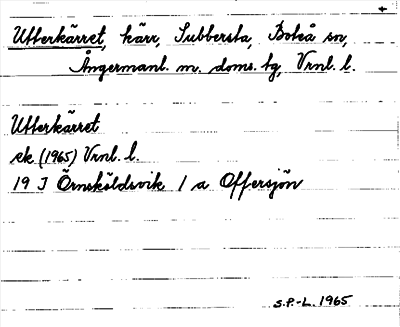 Utterkärret, kärr, Subbersta, Boteå sn,
Ångermanl. m. doms. tg, Vrnl. l.
Utterkärret
ek (1965) Vrnl. l.
19 J Örnsköldsvik 1 a Offersjön
S.P.-L. 1965